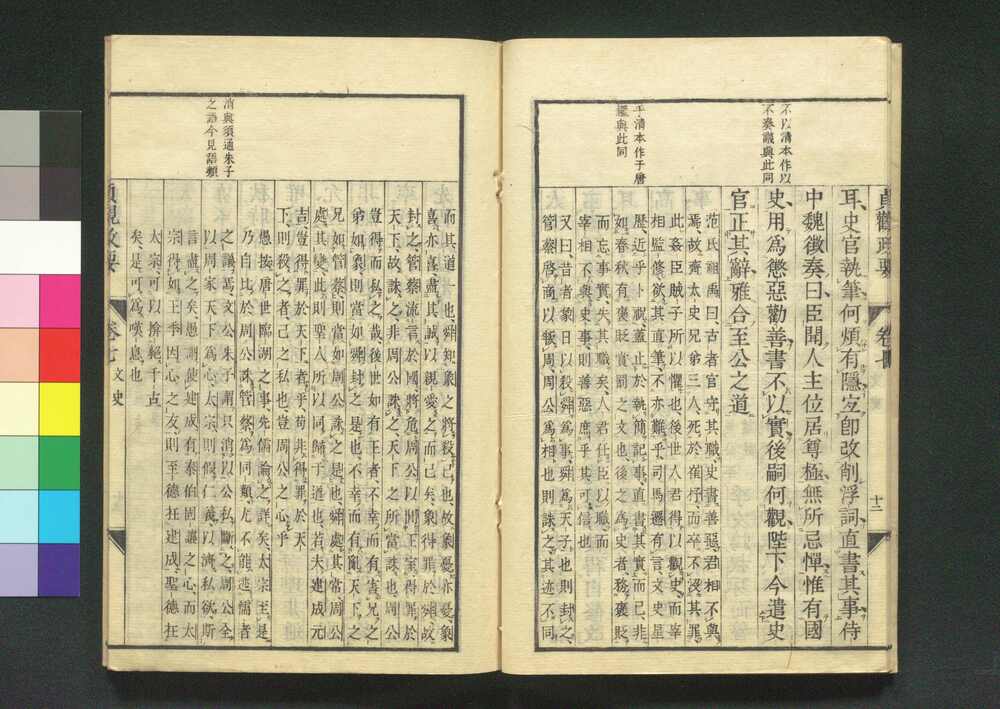 不以清本作以
不奏議與此同
乎清本作于唐
鑑與此同
貞觀政要 卷七 十二
耳、史官執筆、何煩有隱、宜卽改削浮詞、直書其事、侍
中魏徵奏曰、臣聞人主位居尊極、無所忌憚、惟有國
史、用爲懲惡勸善、書不以實、後嗣何觀、陛下今遣史
官正其辭、雅合至公之道、
范氏祖禹曰、古者官守其職、史書善惡、君相不與
焉、故齊太史兄弟三人、死於崔杼、而卒不沒其罪、
此姦臣賊子所以懼也、後世人君得以觀史、而宰
相監修、欲其直筆、不亦難乎、司馬遷有言、文史星
曆、近乎卜祝、蓋止於執簡記事、直書其實而已、非
如春秋有褒貶賞罰之文也、後之爲史者、務褒貶、
而忘事實、失其職矣、人君任臣以職、而
宰相不與史事、則善惡庶乎其可信也
又曰、昔者象日以殺舜爲事、舜爲天子也、則封之、
管蔡啓商以叛周、周公爲相也、則誅之、其迹不同、
消與須通朱子
之語今見語類
而其道一也、舜知象之將殺己也、故象憂亦憂、象
喜亦喜、盡其誠以親愛之而已矣、象得罪於舜、故
封之、管蔡流言於國、將危周公、以閒王室、得罪於
天下、故誅之、非周公誅之、天下之所當誅也、周公
豈得而私之哉、後世如有王者、不幸而有害兄之
弟如象、則當如舜封之、是也、不幸而有亂天下之
兄如管蔡、則當如周公誅之、是也、舜處其常、周公
處其變、此則聖人所以同歸于道也、若夫建成元
吉、豈得罪於天下者乎、苟非得罪於天
下、則殺之者、己之私也、豈周公之心乎
愚按、唐世臨湖之事、先儒論之詳矣、太宗至是、
乃自比於周公誅管蔡、爲同類、尤不能逃儒者
之議焉、文公朱子謂、只消以公私斷之、周公全
以周家天下爲心、太宗則假仁義、以濟私欲、斯
言盡之矣、愚謂使建成有泰伯固讓之心、而太
宗得如王季因心之友、則至德在建成、聖德在
太宗、可以掄範千古
矣、是可爲嘆息也
貞觀政要 卷七 文史